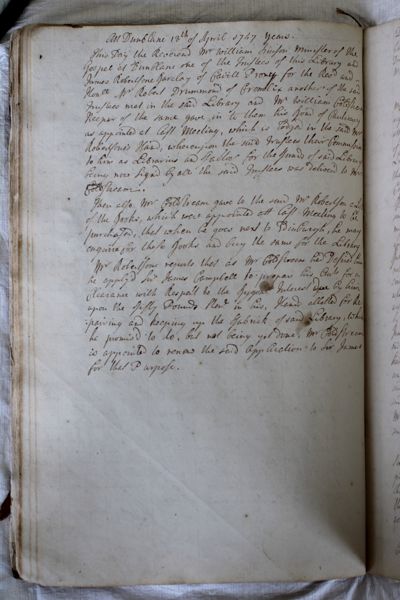 At Dunblane 13th of April 1747 Years.
This Day the Reverend Mr William Simson Minister of the
Gospel at Dunblane one of the Trustees of this Library and
James Robertson Barclay of Proxy for the Revd and
Honble Mr Robert Drummond of Cromlix another of the said
Trustees met in the said Library and Mr William Coldstream
Keeper of the same gave in to them his Bond of Cautionry
as appointed at last Meeting, which is lodged in the said Mr
Robertsons Hand, whereupon the said Trustees their Commission
to him as Librarius and for the funds of said Library
being now signed by all the said Trustees was delivered to Mr
Coldstream.
Then also, Mr Coldstream gave to the said Mr Robertson a List
of the Books, which were appointed at last Meeting to be
purchased, that when he goes next to Edinburgh, he may
enquire for these Books and buy the same for the Library
Mr Robertson reports that as Mr Coldstream he Desired
he applyd Sir James Campbell to propose his for a
Clearance with Respect to the Interest due by him
upon the fifty Pounds Stert in his Hand allotted for re
pairing and keeping up the fabrick of said Library, which
he promised to do, but not being yet done, Mr Coldstream
is appointed to renew the said Application to Sir James
for that Purpose.